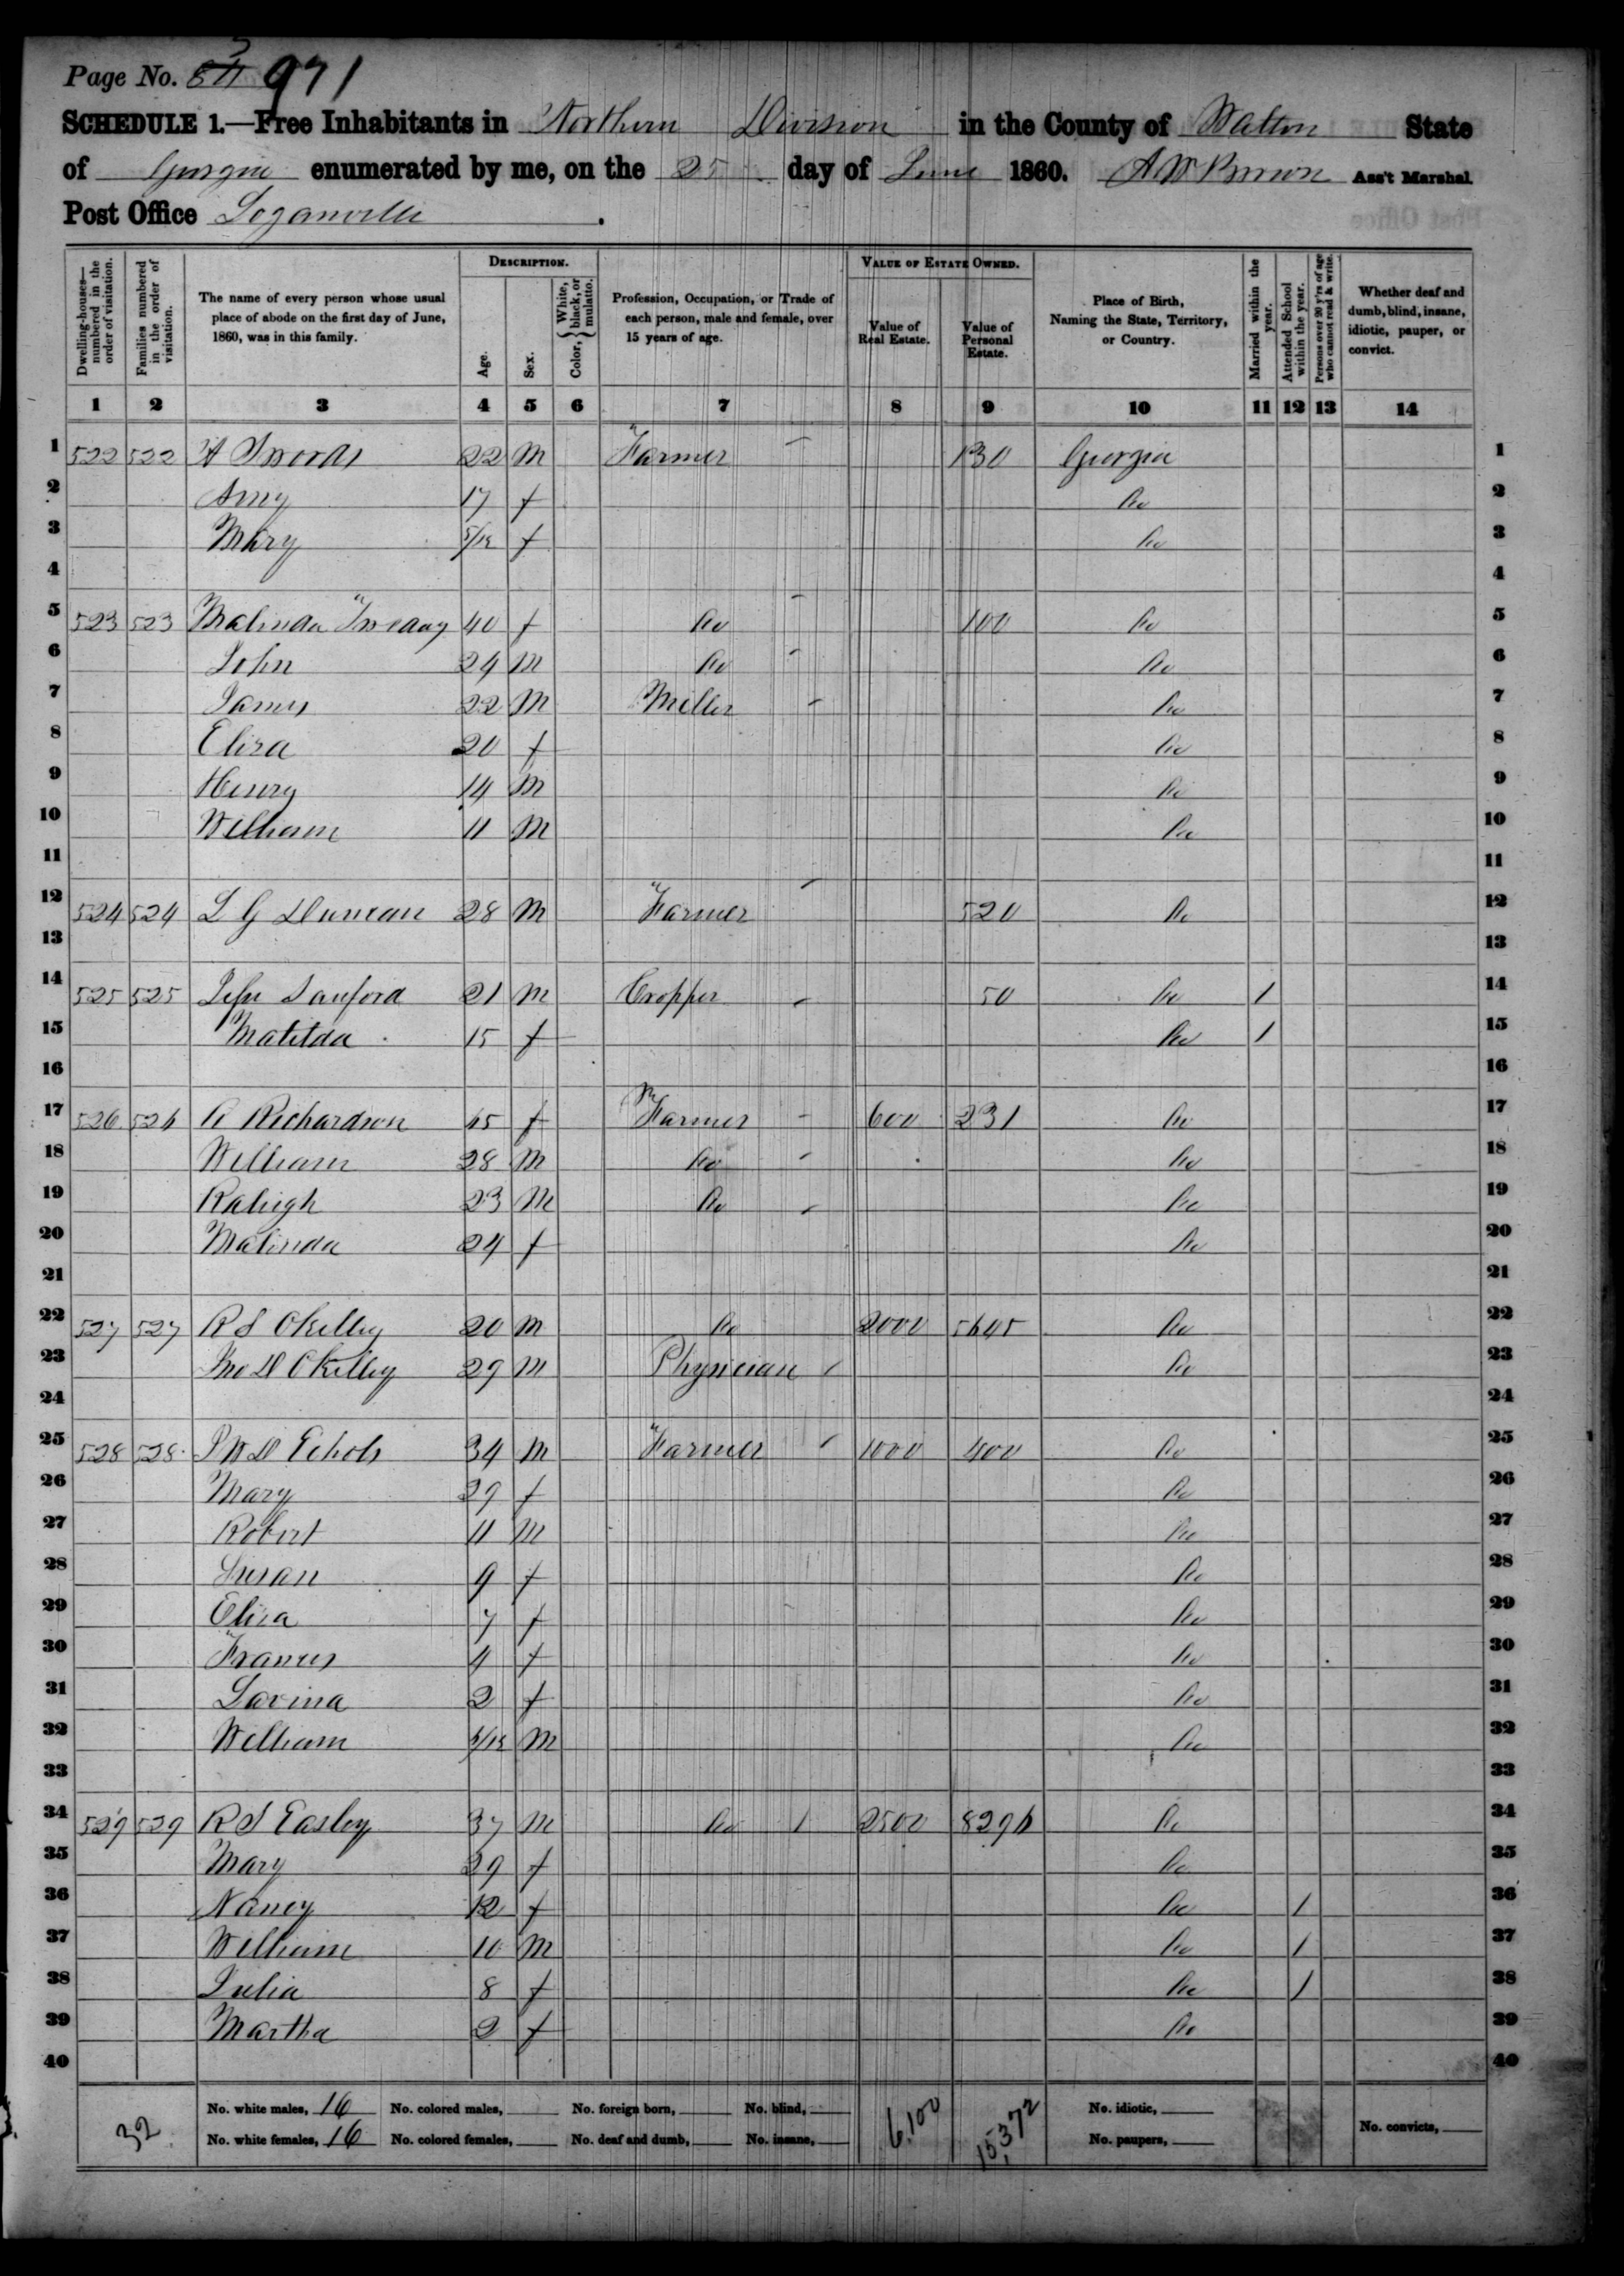 Page No. 971
SCHEDULE 1.—Free Inhabitants in Northern Division in the County of Walton State
of Georgia enumerated by me, on the 25 day of June 1860. A W Brown Ass't Marshal.
Post Office Loganville.
Dwelling-houses—numbered in the order of visitation. Families numbered in the order of visitation. The name of every person whose usual place of abode on the first day of June, 1860, was in this family. DESCRIPTION. Age. Sex. Color, White, black, or mulatto. Profession, Occupation, or Trade of each person, male and female, over 15 years of age. VALUE OF ESTATE OWNED. Value of Real Estate. Value of Personal Estate. Place of Birth, Naming the State, Territory, or Country. Married within the year. Attended School within the year. Persons over 20 y'rs of age who cannot read & write. Whether deaf and dumb, blind, insane, idiotic, pauper, or convict.
1 2 3 4 5 6 7 8 9 10 11 12 13 14
1 522 522 A Swords 22 M Farmer 130 Georgia 1
2 Amy 17 f Do 2
3 Mary 5/12 f Do 3
4 4
5 523 523 Malinda 40 f Do 100 Do 5
6 John 24 M Do Do 6
7 James 22 M Miller Do 7
8 Eliza 20 f Do 8
9 Henry 14 M Do 9
10 William 11 M Do 10
11 11
12 524 524 L G Duncan 28 M Farmer 520 Do 12
13 13
14 525 525 Sanford 21 M Cropper 50 Do 1 14
15 Matilda 15 f Do 1 15
16 16
17 526 526 Richardson 45 f Farmer 600 231 Do 17
18 William 28 M Do Do 18
19 Raleigh 23 M Do Do 19
20 Malinda 24 f Do 20
21 21
22 527 527 R S OKelley 20 M Do 2000 5645 Do 22
23 Jno D OKelley 29 M Physician Do 23
24 24
25 528 528 J W D Echols 34 M Farmer 1000 400 Do 25
26 Mary 29 f Do 26
27 Robert 11 M Do 27
28 Susan 9 f Do 28
29 Eliza 7 f Do 29
30 Frances 4 f Do 30
31 Lavina 2 f Do 31
32 William /12 M Do 32
33 33
34 529 529 R S Easley 37 M Do 2500 8296 Do 34
35 Mary 29 f Do 35
36 Nancy 12 f Do 1 36
37 William 10 M Do 1 37
38 Julia 8 f Do 1 38
39 Martha 2 f Do 39
40 40
32 No. white males, 16 No. colored males, No. foreign born, No. blind, 6,100 15,372 No. idiotic,
No. white females, 16 No. colored females, No. deaf and dumb, No. insane, No. paupers, No. convicts,